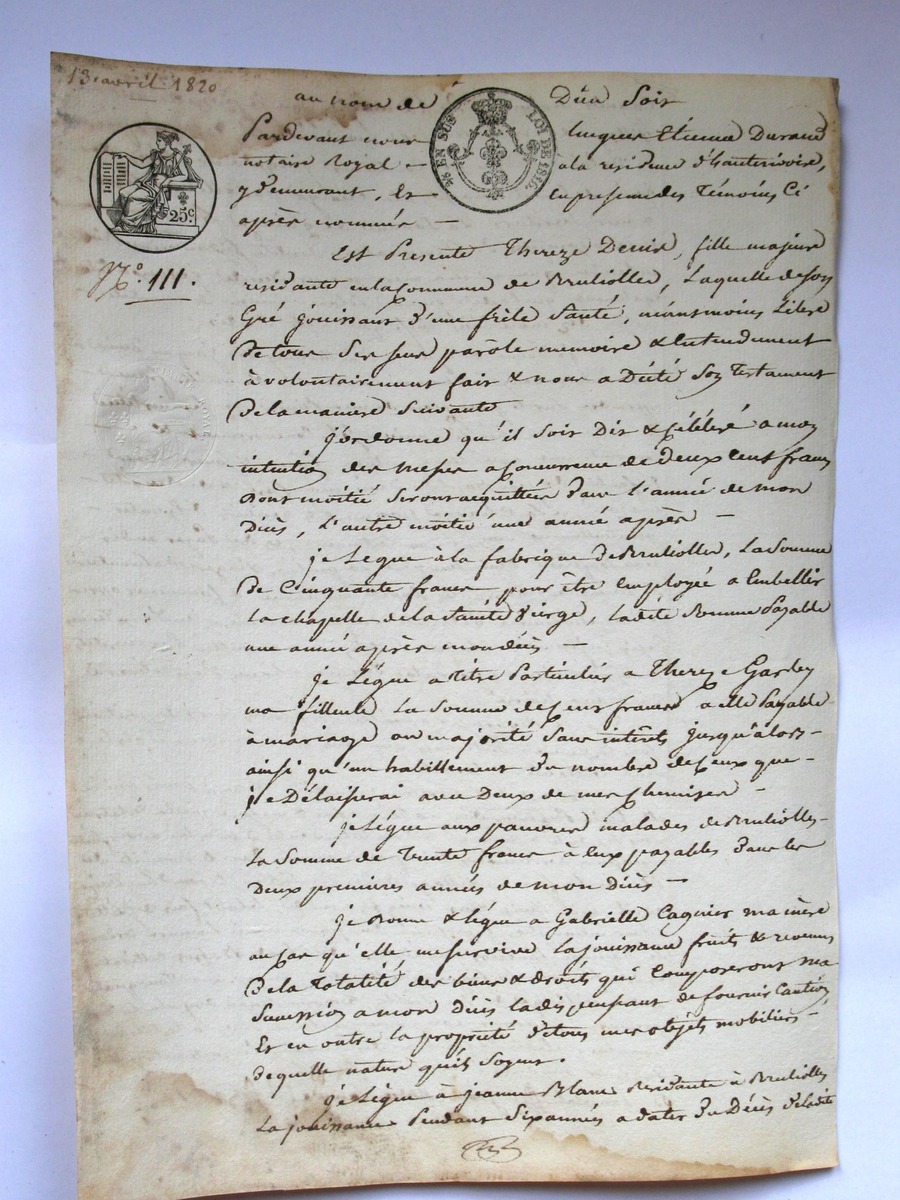 13 avril 1820
au nom de Dieu Soit
Pardevant nous hugues Etienne Durand
notaire Royal – a la residence d'hauterivoire,
y demeurant, Et en presence des Temoins Ci
après nommés –
EN SUS LOI DE 1816.
25c
N.º 111.
Est Presente Thereze Denis, fille majeure
residante en la Commune de Brulioller, Laquelle de son
Gré jouissant d'une frêle Santé, néantmoins Libre
de tous Ses sens parole memoire & Entendement
à volontairement fait & nous a Dicté Son Testament
de la maniere Suivante
j'ordonne qu'il soit Dit & Célébré a mon
intention des messes a Concurrence de deux Cent francs
Dont moitié Seront acquittées dans l'année de mon
Décès, L'autre moitié une année après –
je Lègue à la fabrique de Brulioller, La Somme
de Cinquante francs pour être Employée a Embellir
La chapelle de la Sainte Vierge, Ladite Somme Payable
une année après mon décès –
je Lègue a titre Particulier a Thereze
ma filleule La Somme de Cent francs a elle Payable
à mariage ou majorité Sans intérêts jusqu'alors –
ainsi qu'un habillement du nombre de Ceux que –
je Délaisserai avec Deux de mes Chemises –
je Lègue aux pauvres malades de Brulioller –
La Somme de Trente francs à Eux payables dans les
Deux premieres années de mon Décès –
je Donne & lègue a Gabrielle Cagnier ma mère
au Cas qu'elle me Survive La jouissance fruits & revenus
De la Totalité des biens & droits qui Composeront ma
Succession a mon décès la dispensant de fournir Caution
Et en outre la propriété de tous mes objets mobiliers –
de quelle nature qu'ils Soyent.
je Lègue à jeanne Blanc Residante à Brulioller
La jouissance Pendant Six années a dater du Décès de ladite